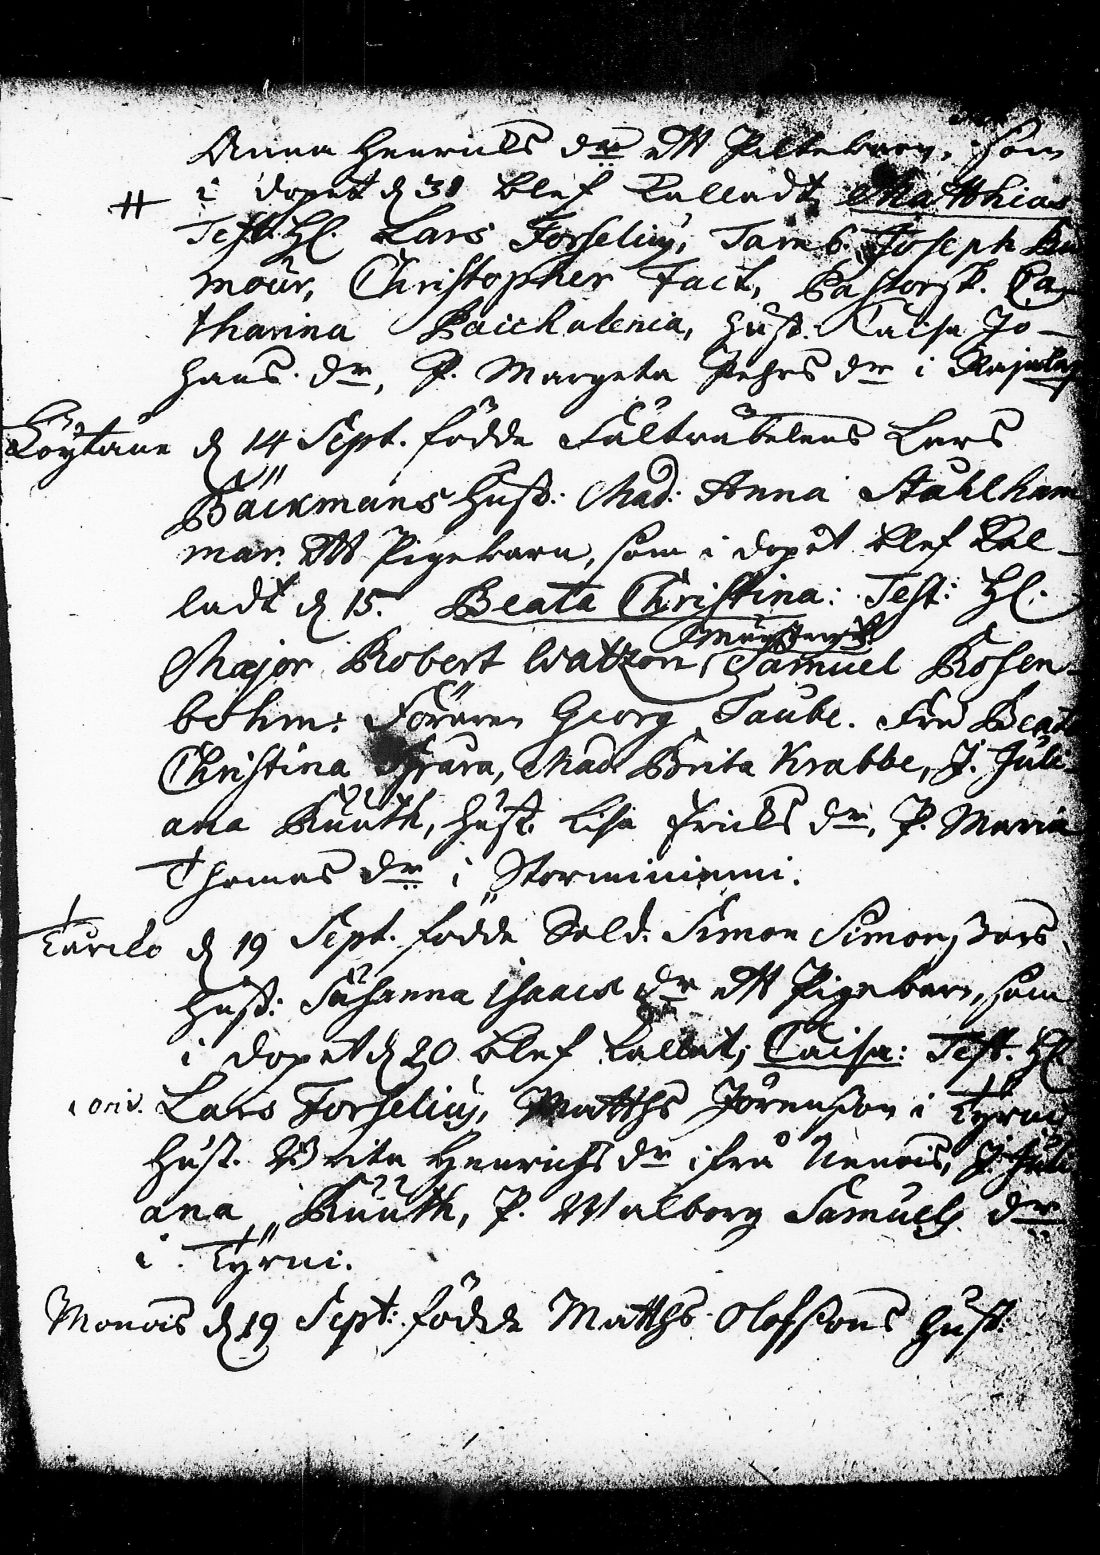 Anna Henrichs dr ett Piltebarn, som
# i dopet d 31 blef kalladt Matthias
Test. Hl. Lars Forselius, Tamb. Joseph
mour, Christopher Fact, Pastorsk. Ca-
tharina Paichalenia, Hust. Caisa Jo-
hans dr, P. Margeta Pehrs dr i
Löytäne d 14 Sept. födde Fältwäbelens Lars
Bäckmans Hust: Mad: Anna Stahlham
mar. ett Pigebarn, som i dopet blef kal-
ladt d 15. Beata Christina: Test: Hl.
Major Robert Watzon, Munsterskr. Samuel Rosen-
bohm: Föraren Georg Taube. Fru Beata
Christina, Mad. Brita Krabbe, J. Juli-
ana Ruuth, Hust. Lisa Erichs dr, P. Maria
Thomas dr i Storminiemi.
Turilo d 19 Sept. födde Sold: Simon Simonssons
Hust: Susanna Isaacs dr ett Pigebarn, som
i dopet d 20 blef kallat; Caisa: Test. Hl
Lars Forselius, Matths Jörensson i Tyrni
Hust. Brita Henrichs dr ifrå Nenois, J. Juli
ana Ruuth, P. Walborg Samuels dr
i Tyrni.
Monois d 19 Sept: födde Matths Olofssons Hust: